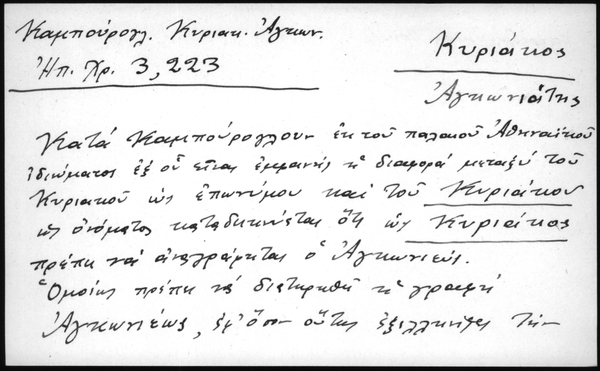 Καμπούρογλ. Κυριακ. Ἀγκων.
Ἠπ. Χρ. 3, 223
Κυριάκος
Ἀγκωνιάτης
Κατά Καμπούρογλουν ἐκ τοῦ παλαιοῦ Ἀθηναϊκοῦ
ἰδιώματος ἐξ οὗ εἶναι ἐμφανής ἡ διαφορά μεταξύ τοῦ
Κυριακοῦ ὡς ἐπωνύμου καί τοῦ Κυριάκου
ὡς ὀνόματος καταδεικνύεται ὅτι ὡς Κυριάκος
πρέπει νά ἀναγράφεται ὁ Ἀγκωνιεύς.
Ὁμοίως πρέπει νά διατηρηθῇ ἡ γραφή
Ἀγκωνιέως, ἐφ' ὅσον οὕτως ἐξελλήνισε τήν